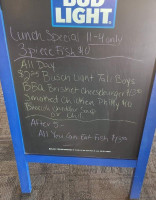 BUD
LIGHT
Lunch Special 11-4 only
3 piece Fish $10
All Day
Busch Light Tall Boys
BBQ Brisket Cheeseburger
Smoked Chicken Philly $10
Broccoli cheddar Soup
or Chili
After 5-
All You Can Eat Fish